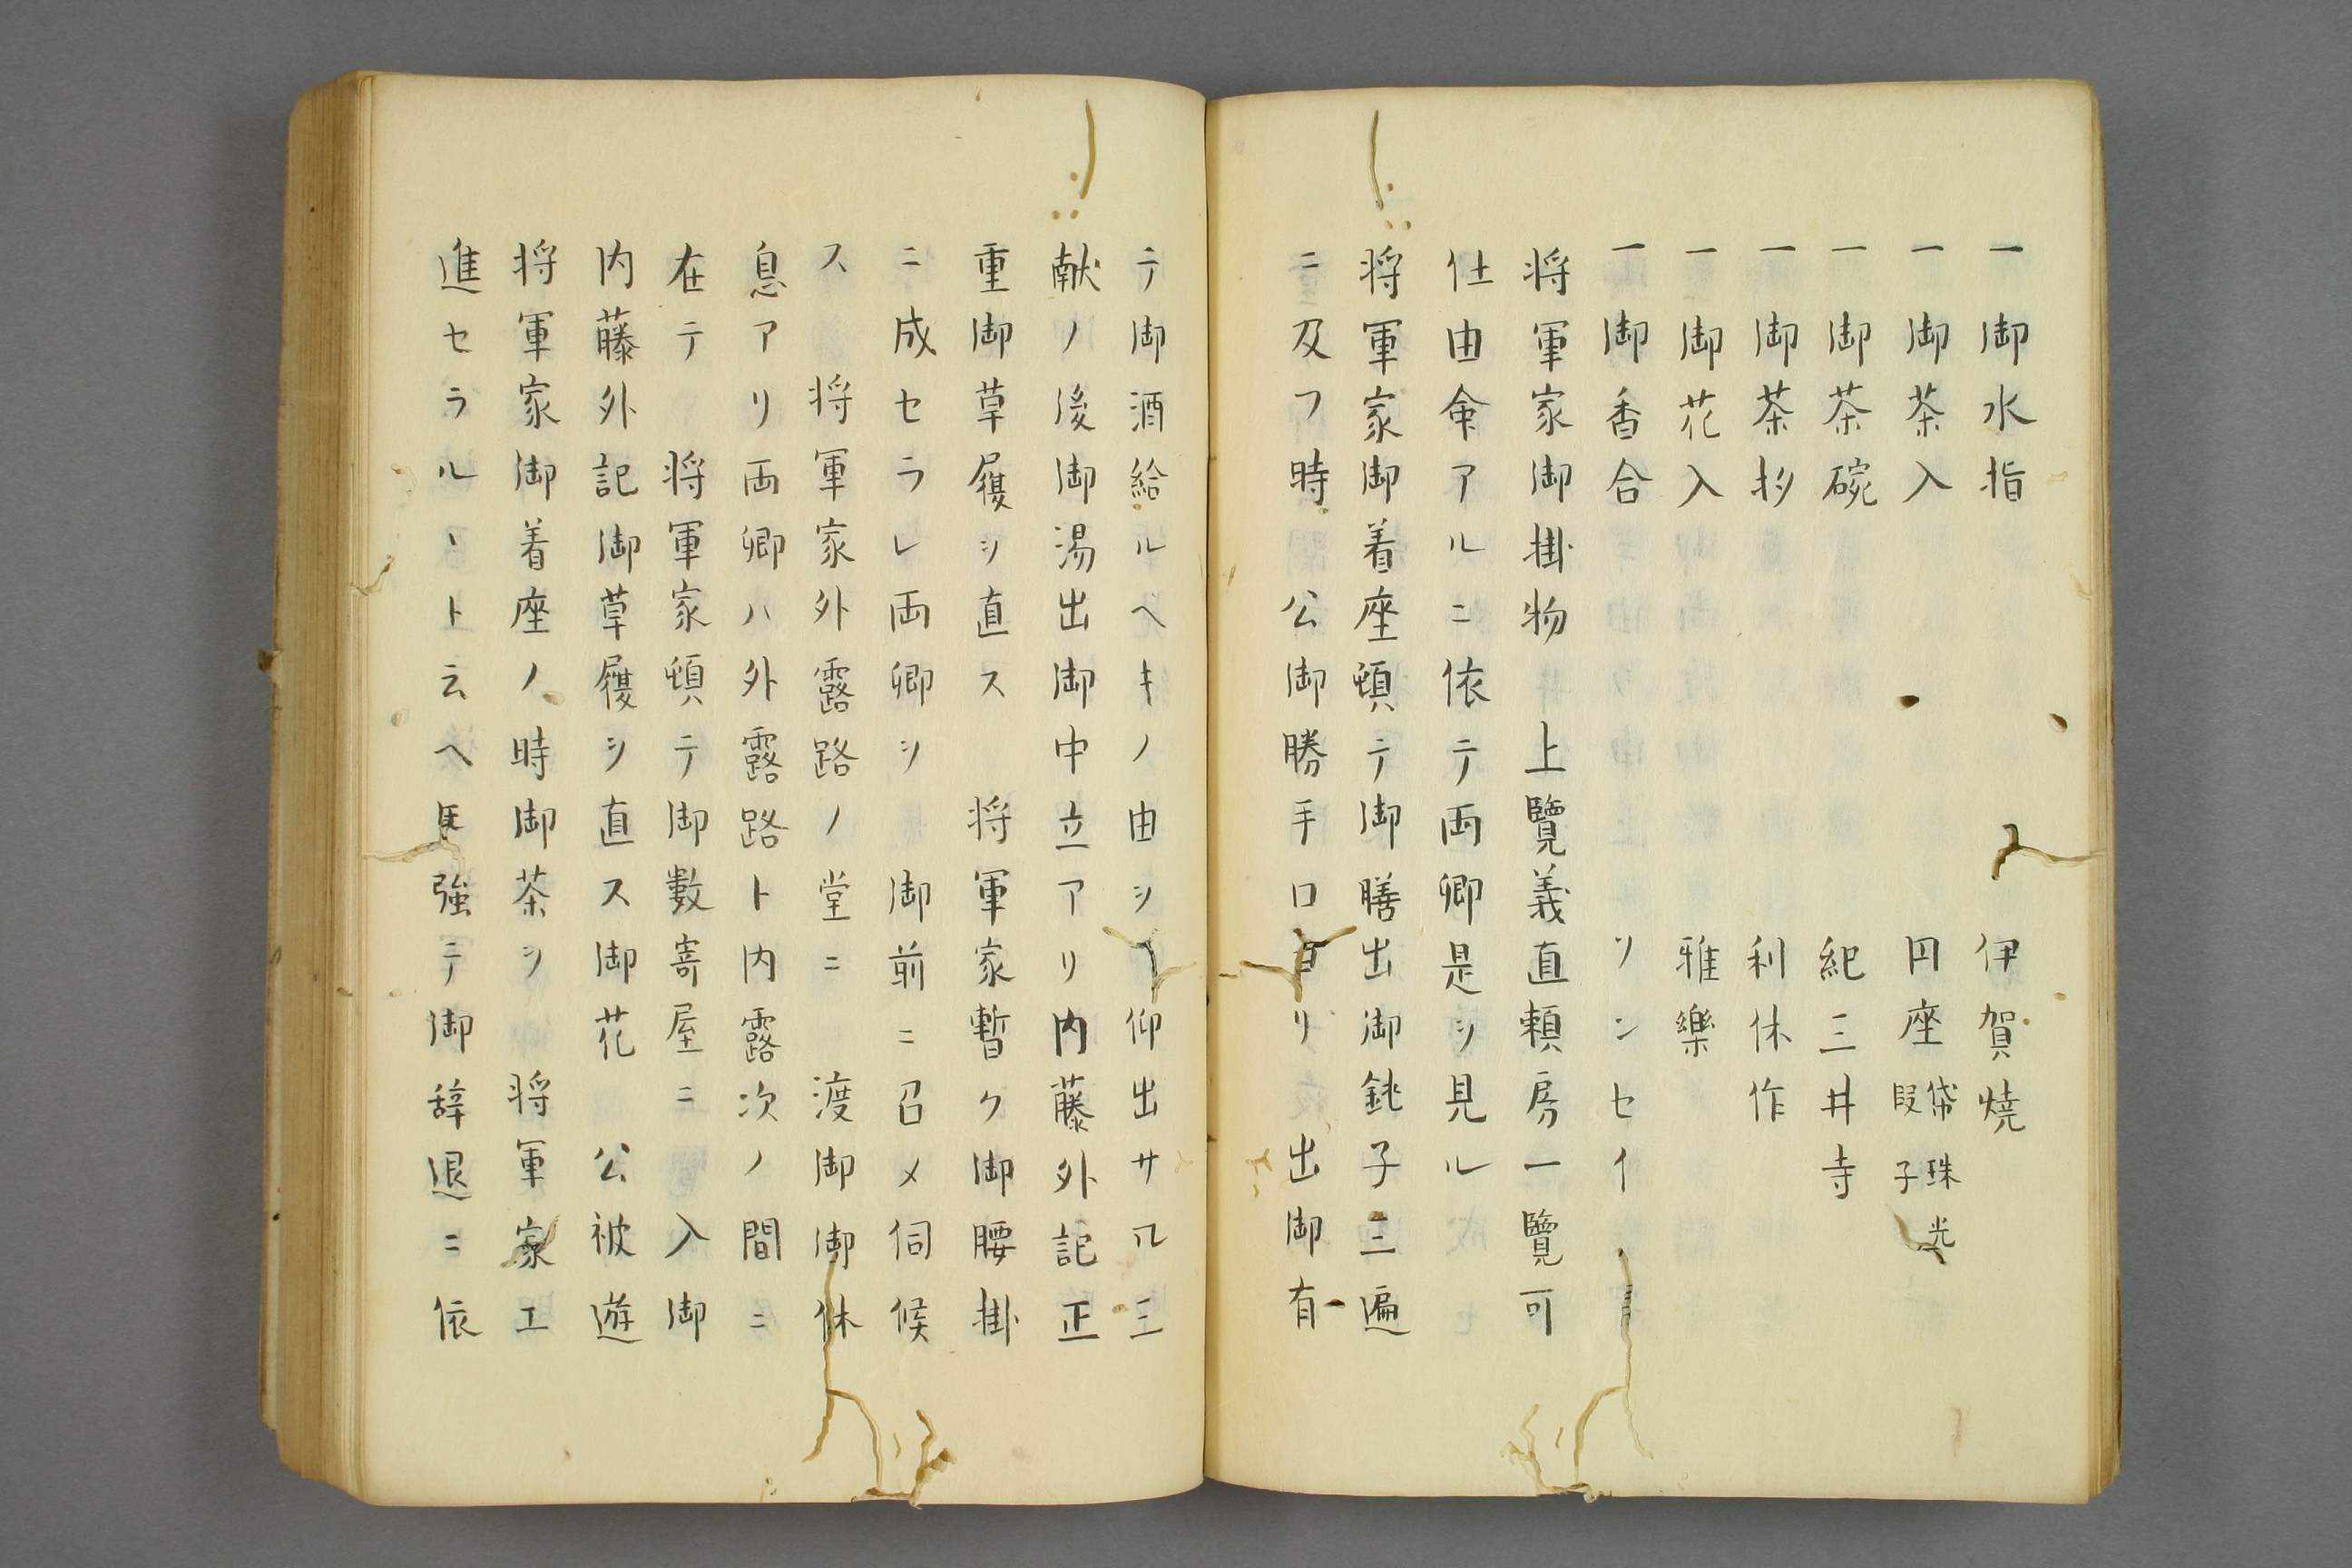 一御水指　伊賀燒
一御茶入　円座　袋珠光
段子
一御茶碗　紀三井寺
一御茶杉　利休作
一御花入　雅樂
一御香合　ソンセイ
将軍家御掛物　上覽義直頼房一覽可
仕由命アルニ依テ両卿是ヲ見ル
将軍家御着座頓テ御膳出御銚子三遍
ニ及フ時　公御勝手口ヨリ　出御有
テ御酒給ルヘキノ由ヲ　仰出サル三
献ノ後御湯出御中立アリ内藤外記正
重御草履ヲ直ス　将軍家暫ク御腰掛
ニ成セラレ両卿ヲ　御前ニ召メ伺候
ス　将軍家外露路ノ堂ニ　渡御御休
息アリ両卿ハ外露路ト内露次ノ間ニ
在テ　将軍家頓テ御數寄屋ニ　入御
内藤外記御草履ヲ直ス御花　公被遊
将軍家御着座ノ時御茶ヲ　将軍家エ
進セラル丶ト云ヘ𪜈強テ御辞退ニ依